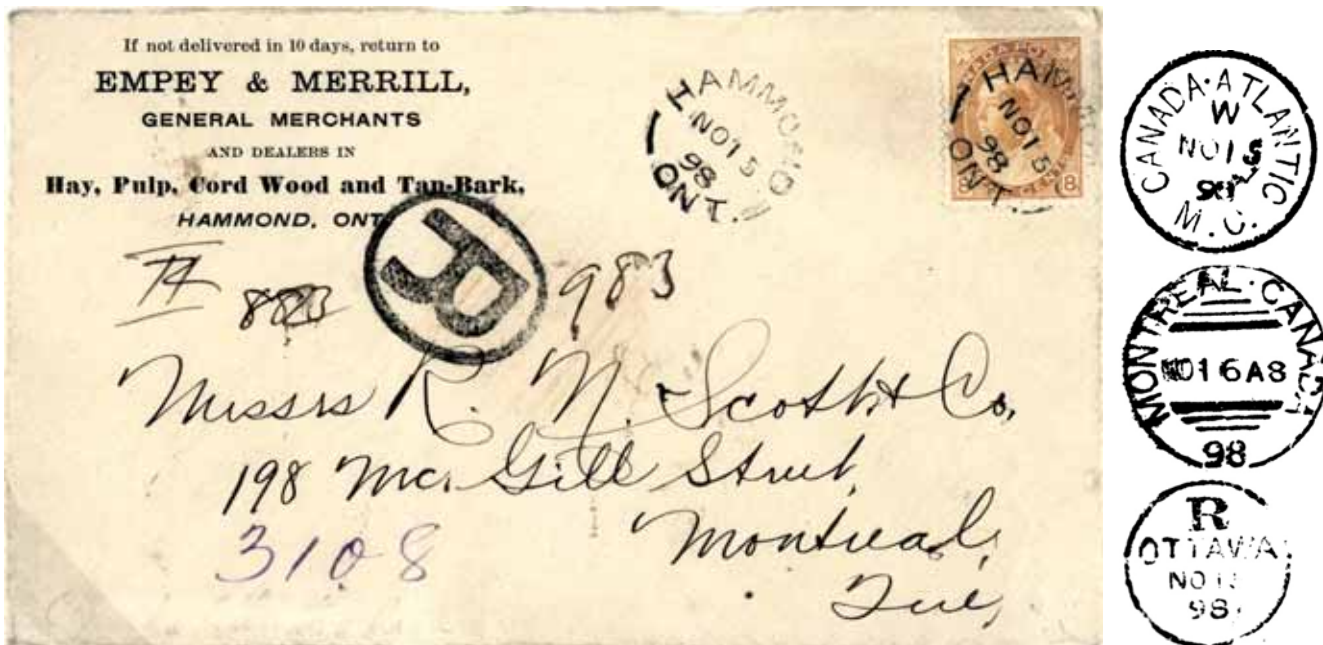 If not delivered in 10 days, return to
EMPEY & MERRILL,
GENERAL MERCHANTS
AND DEALERS IN
Hay, Pulp, Cord Wood and Tan-Bark,
HAMMOND, ONT
HAMMOND
NO 15
98
ONT.
HAMMOND
NO 15
98
ONT.
8 8
R
883
983
Messrs R. N. Scott & Co,
198 Mc.Gill Street,
Montreal,
Que,
3108
CANADA·ATLANTIC
W
NO 15
98
M.C.
MONTREAL·CANADA
NO 16 A8
98
R
OTTAWA
NO 1
98